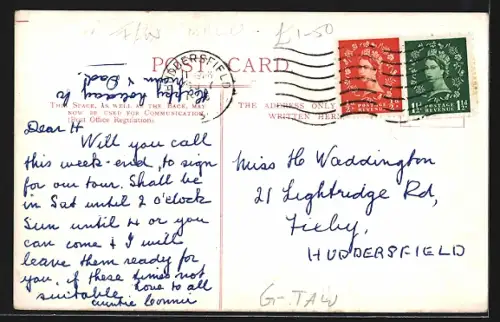 F/W
£1-50
POST CARD
HUDDERSFIELD
Happy holiday to
mom & Dad!
THE SPACE, AS WELL AS THE BACK, MAY
NOW BE USED FOR COMMUNICATION.
(Post Office Regulation).
THE ADDRESS ONLY
WRITTEN HERE
POSTAGE REVENUE
1½d POSTAGE REVENUE 1½d
Dear H
Will you call
this week-end, to sign
for our tour. Shall be
in Sat until 2 o'clock
Sun until 4 or you
can come & I will
leave them ready for
you, if these times not
suitable love to all
auntie Connie
Miss H Waddington
21 Lightridge Rd,
Fixby,
HUDDERSFIELD
G-TAW